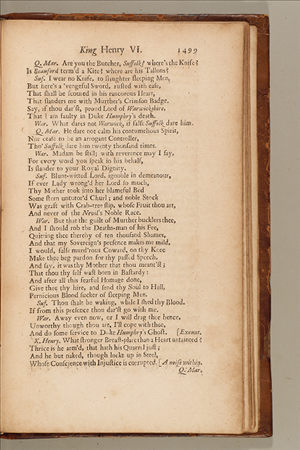 King Henry VI. 1499
Q. Mar. Are you the Butcher, Suffolk? where's the Knife?
Is Beauford term'd a Kite? where are his Tallons?
Suf. I wear no Knife, to slaughter sleeping Men,
But here's a 'vengeful Sword, rusted with ease,
That shall be scoured in his rancorous Heart,
That slanders me with Murther's Crimson Badge.
Say, if thou dar'st, proud Lord of Warwickshire,
That I am faulty in Duke Humphry's death.
War. What dares not Warwick, if false Suffolk dare him?
Q. Mar. He dare not calm his contumelious Spirit,
Nor cease to be an arrogant Controller,
Tho' Suffolk dare him twenty thousand times.
War. Madam be still; with reverence may I say,
For every word you speak in his behalf,
Is slander to your Royal Dignity.
Suf. Blunt-witted Lord, ignoble in demeanour,
If ever Lady wrong'd her Lord so much,
Thy Mother took into her blameful Bed
Some stern untutor'd Churl; and noble Stock
Was graft with Crab-tree slip, whose Fruit thou art,
And never of the Nevil's Noble Race.
War. But that the guilt of Murther bucklers thee,
And I should rob the Deaths-man of his Fee,
Quitting thee thereby of ten thousand Shames,
And that my Sovereign's presence makes me mild,
I would, false murd'rous Coward, on thy Knee
Make thee beg pardon for thy passed Speech,
And say, it was thy Mother that thou meant'st;
That thou thy self wast born in Bastardy:
And after all this fearful Homage done,
Give thee thy hire, and send thy Soul to Hell,
Pernicious Blood-sucker of sleeping Men.
Suf. Thou shalt be waking, while I shed thy Blood,
If from this presence thou dar'st go with me.
War. Away even now, or I will drag thee hence,
Unworthy though thou art, I'll cope with thee,
And do some service to Duke Humphry's Ghost. [Exeunt.
K. Henry. What stronger Breast-plate than a Heart untainted?
Thrice is he arm'd, that hath his Quarrel just;
And he but naked, though lockt up in Steel,
Whose Conscience with Injustice is corrupted. [A noise within.
Q. Mar.